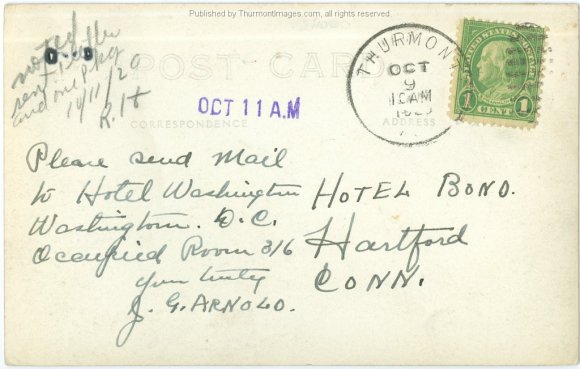 Published by ThurmontImages.com, all rights reserved.
noted
sent 1 letter
and one pkg
10/11/29
R.H
POST CARD
THURMONT
OCT
9
10AM
UNITED STATES POSTAGE
1 CENT 1
OCT 11 A.M
CORRESPONDENCE
ADDRESS
Please send Mail
to Hotel Washington
Washington. D.C.
Occupied Room 316
Yours truly
J. G. ARNOLD.
HOTEL BOND.
Hartford
CONN.